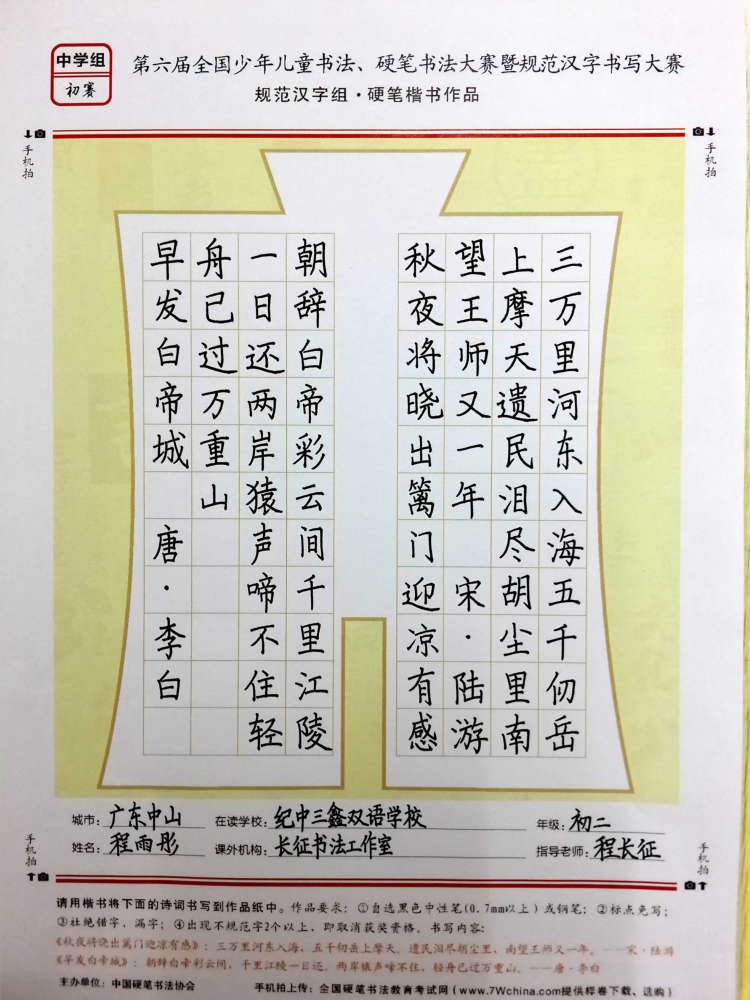 中学组
初赛
第六届全国少年儿童书法、硬笔书法大赛暨规范汉字书写大赛
规范汉字组·硬笔楷书作品
手机拍
手机拍
三万里河东入海五千仞岳
上摩天遗民泪尽胡尘里南
望王师又一年 宋·陆游
秋夜将晓出篱门迎凉有感
朝辞白帝彩云间千里江陵
一日还两岸猿声啼不住轻
舟已过万重山
早发白帝城 唐·李白
城市：广东中山 在读学校：纪中三鑫双语学校 年级：初二
姓名：程雨彤 课外机构：长征书法工作室 指导老师：程长征
手机拍
手机拍
请用楷书将下面的诗词书写到作品纸中。作品要求：①自选黑色中性笔(0.7mm以上）或钢笔；②标点免写；
③杜绝错字、漏字；④出现不规范字2个以上，即取消获奖资格。书写内容：
《秋夜将晓出篱门迎凉有感》：三万里河东入海，五千仞岳上摩天。遗民泪尽胡尘里，南望王师又一年。——宋·陆游
《早发白帝城》：朝辞白帝彩云间，千里江陵一日还。两岸猿声啼不住，轻舟已过万重山。——唐·李白
主办单位：中国硬笔书法协会 手机拍上传：全国硬笔书法教育考试网（www.7Wchina.com提供样卷下载、选购）